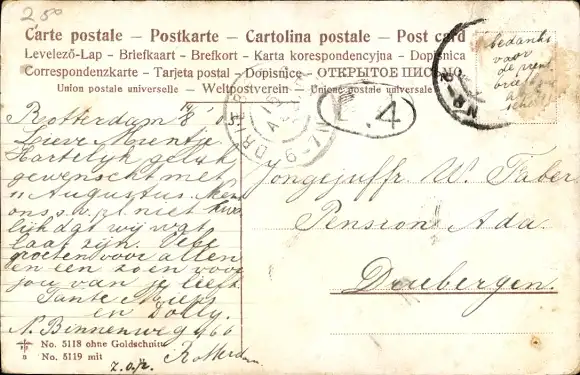 250
Carte postale – Postkarte – Cartolina postale – Post card
Levelező-Lap – Briefkaart – Brefkort – Karta korespondencyjna – Dopisnica
Correspondenzkarte – Tarjeta postal – Dopisnice – ОТКРЫТОЕ ПИСЬМО
Union postale universelle – Weltpostverein – Unione postale universale
bedankt
voor
de prent
brief
Rotterdam 14/8
Lieve Mientje
Hartelijk geluk
gewenscht met
11 Augustus. Neem
ons s.v.pl. niet kwa
lijk dat wij wat
laat zijn. Vele
groeten voor allen
en een zoen voor
jou van je liefh.
Tante Mies
en Dolly.
N. Binnenweg 466
Rotterdam
z.o.z.
DRIEB
4
Jongejuffr. W. Faber
Pension Ada.
Driebergen.
No. 5118 ohne Goldschnitt
No. 5119 mit